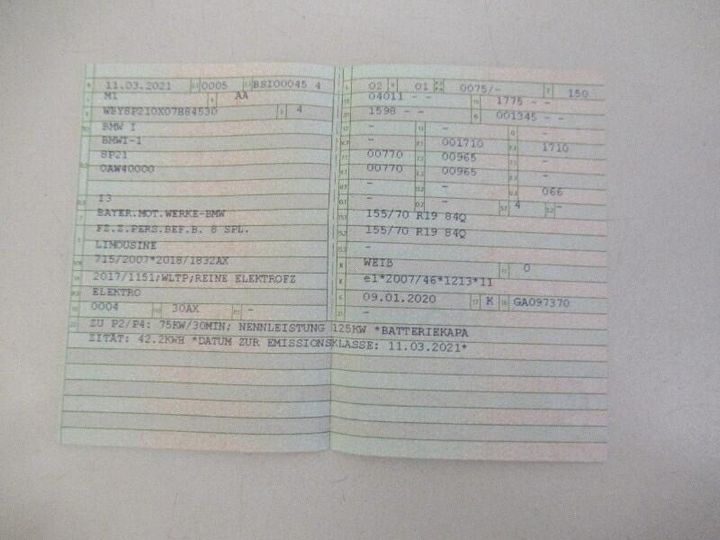 11.03.2021 0005 BSI00045 4
M1 AA
WBY8P210X07B84530 4
BMW I
BMWI-1
8P21
0AW40000
I3
BAYER.MOT.WERKE-BMW
FZ.Z.PERS.BEF.B. 8 SPL.
LIMOUSINE
715/2007*2018/1832AX
2017/1151;WLTP;REINE ELEKTROFZ
ELEKTRO
0004 30AX -
02 01 0075/- 150
04011 - - 1775 - -
1598 - - 001345 - -
- - -
- 001710 1710
00770 00965 -
00770 00965 -
- - 066
- - 4 -
155/70 R19 84Q
155/70 R19 84Q
-
WEIß 0
e1*2007/46*1213*11
09.01.2020 K GA097370
-
ZU P2/P4: 75KW/30MIN; NENNLEISTUNG 125KW *BATTERIEKAPA
ZITÄT: 42.2KWH *DATUM ZUR EMISSIONSKLASSE: 11.03.2021*